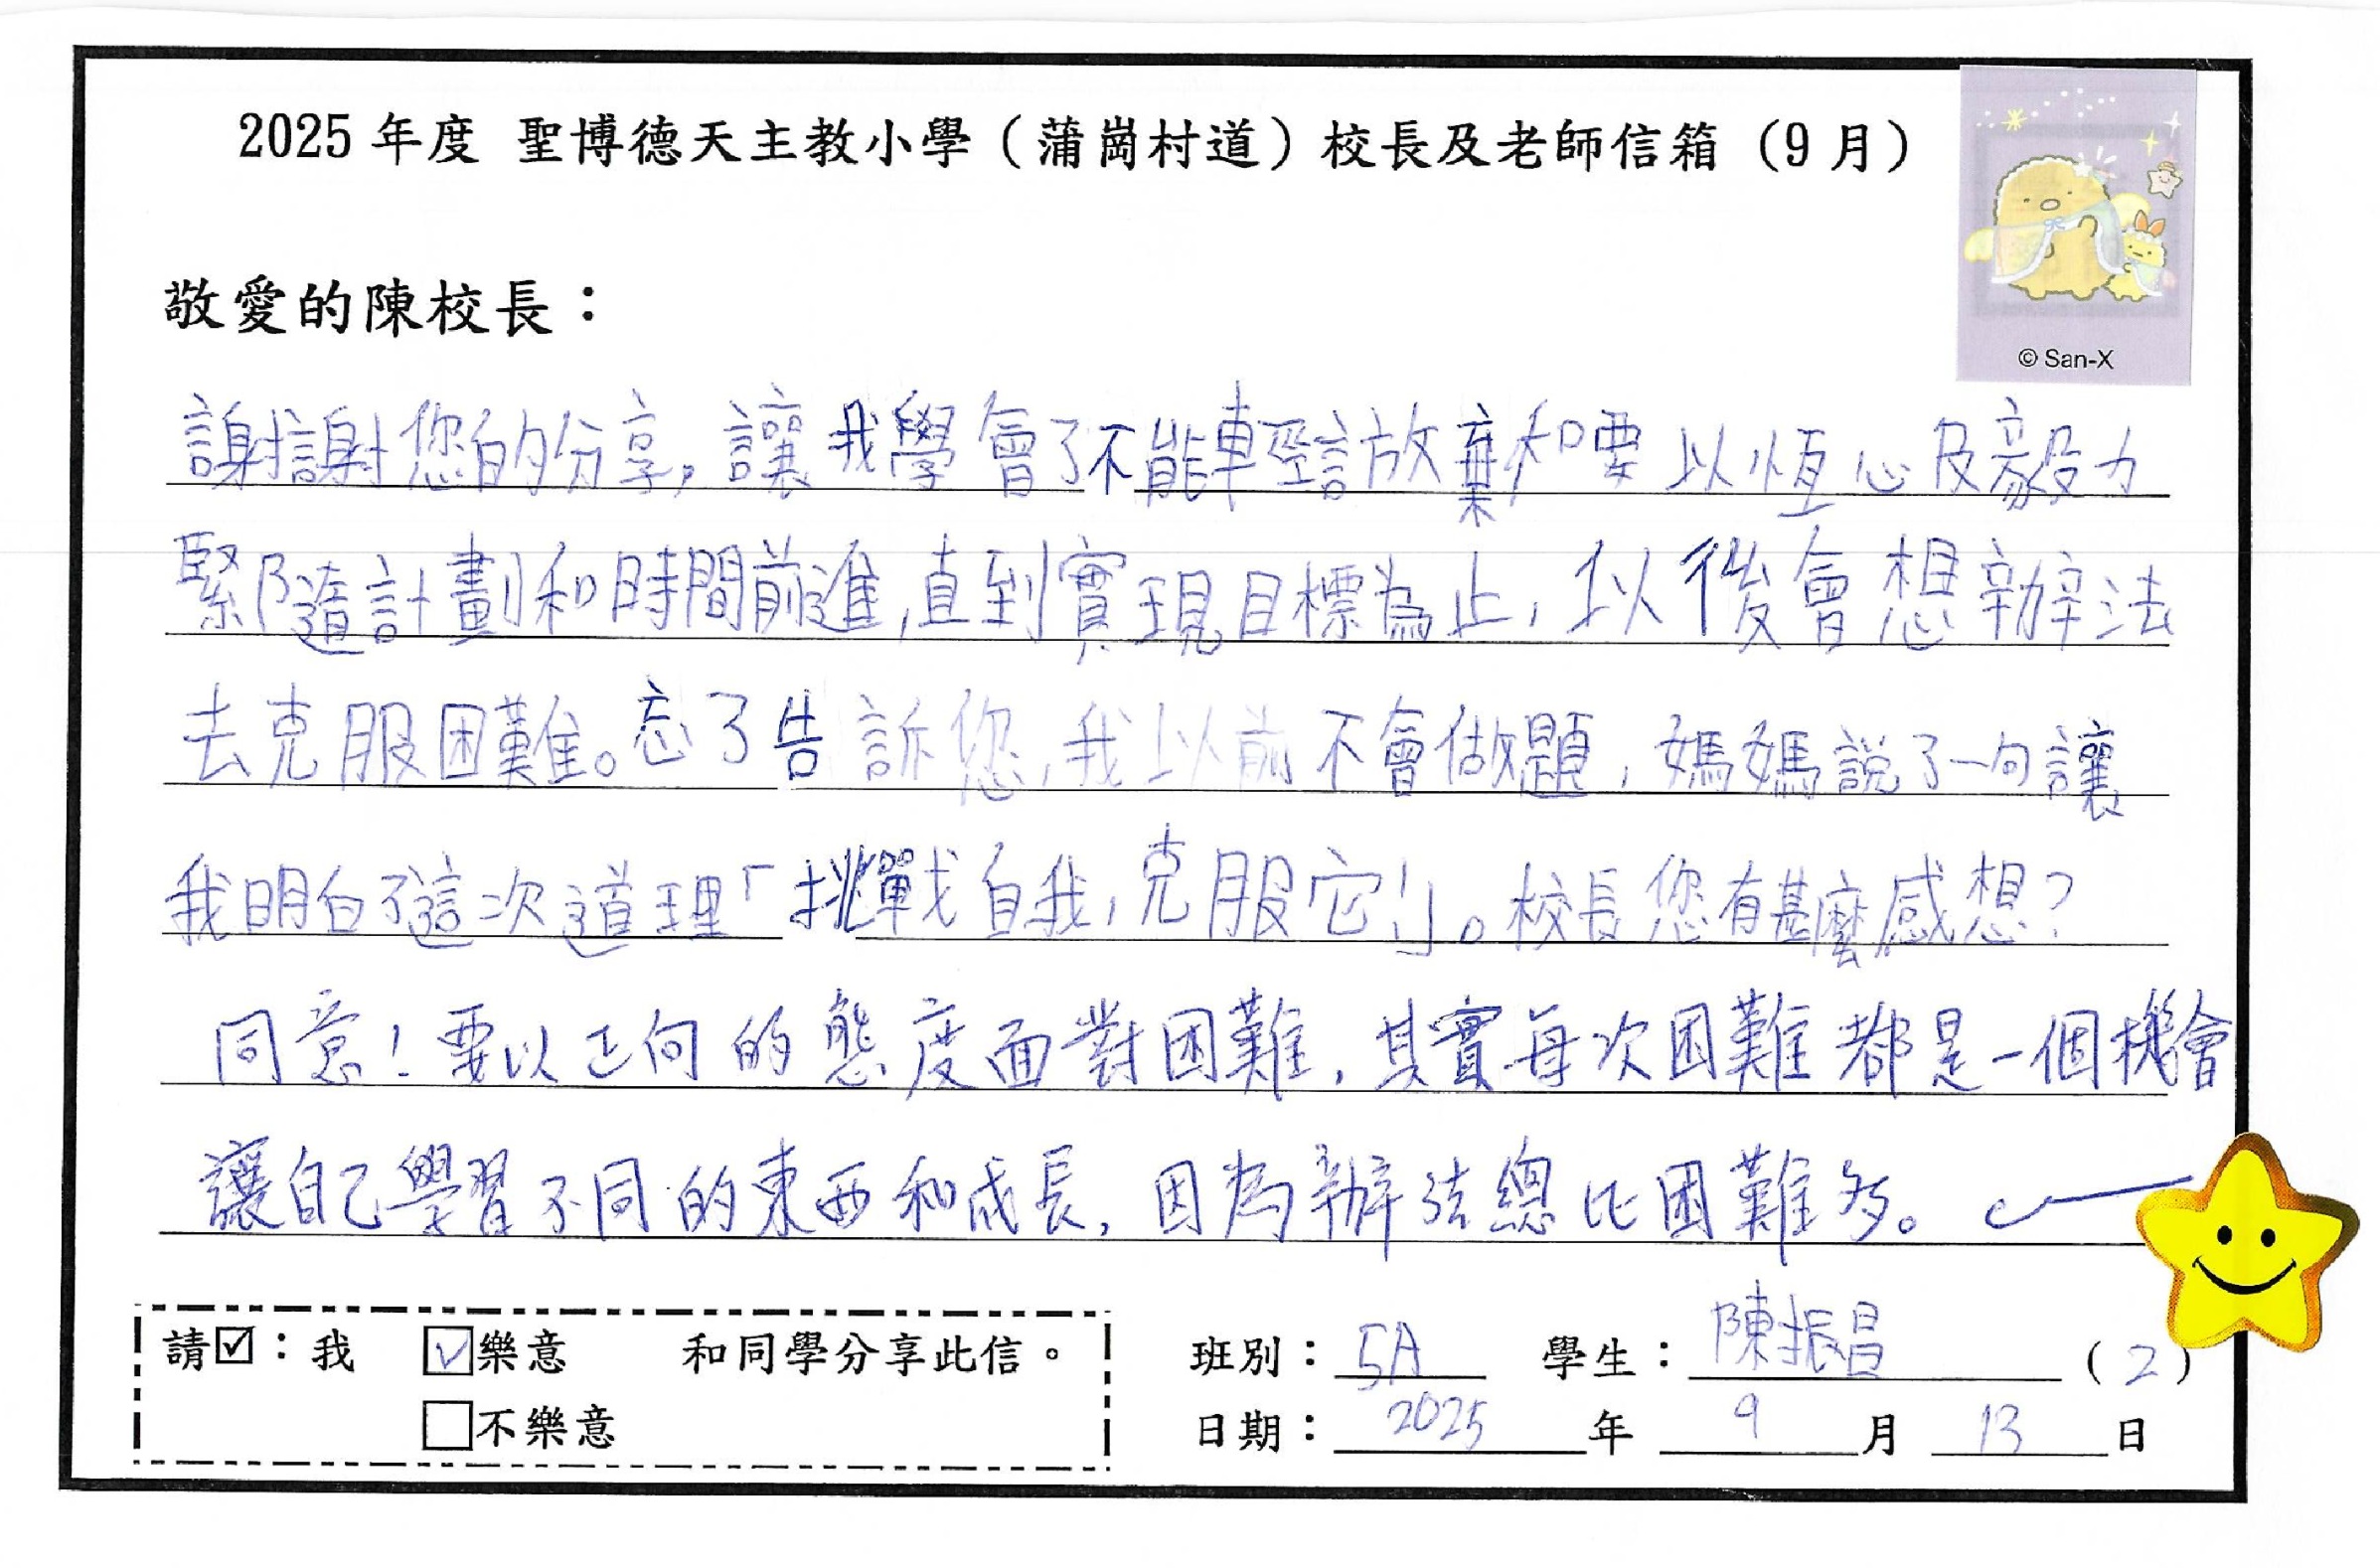 2025 年度 聖博德天主教小學（蒲崗村道）校長及老師信箱（9 月）
© San-X
敬愛的陳校長：
謝謝您的分享，讓我學會了不能輕言放棄和要以恆心及毅力
緊隨計劃和時間前進，直到實現目標為止，以後會想辦法
去克服困難。忘了告訴您，我以前不會做題，媽媽說了一句讓
我明白了這次道理「挑戰自我，克服它!」。校長您有甚麼感想？
同意！要以正向的態度面對困難，其實每次困難都是一個機會
讓自己學習不同的東西和成長，因為辦法總比困難多。
請☑：我 ☑樂意 和同學分享此信。
□不樂意
班別：5A 學生：陳振昌（2）
日期：2025 年 9 月 13 日